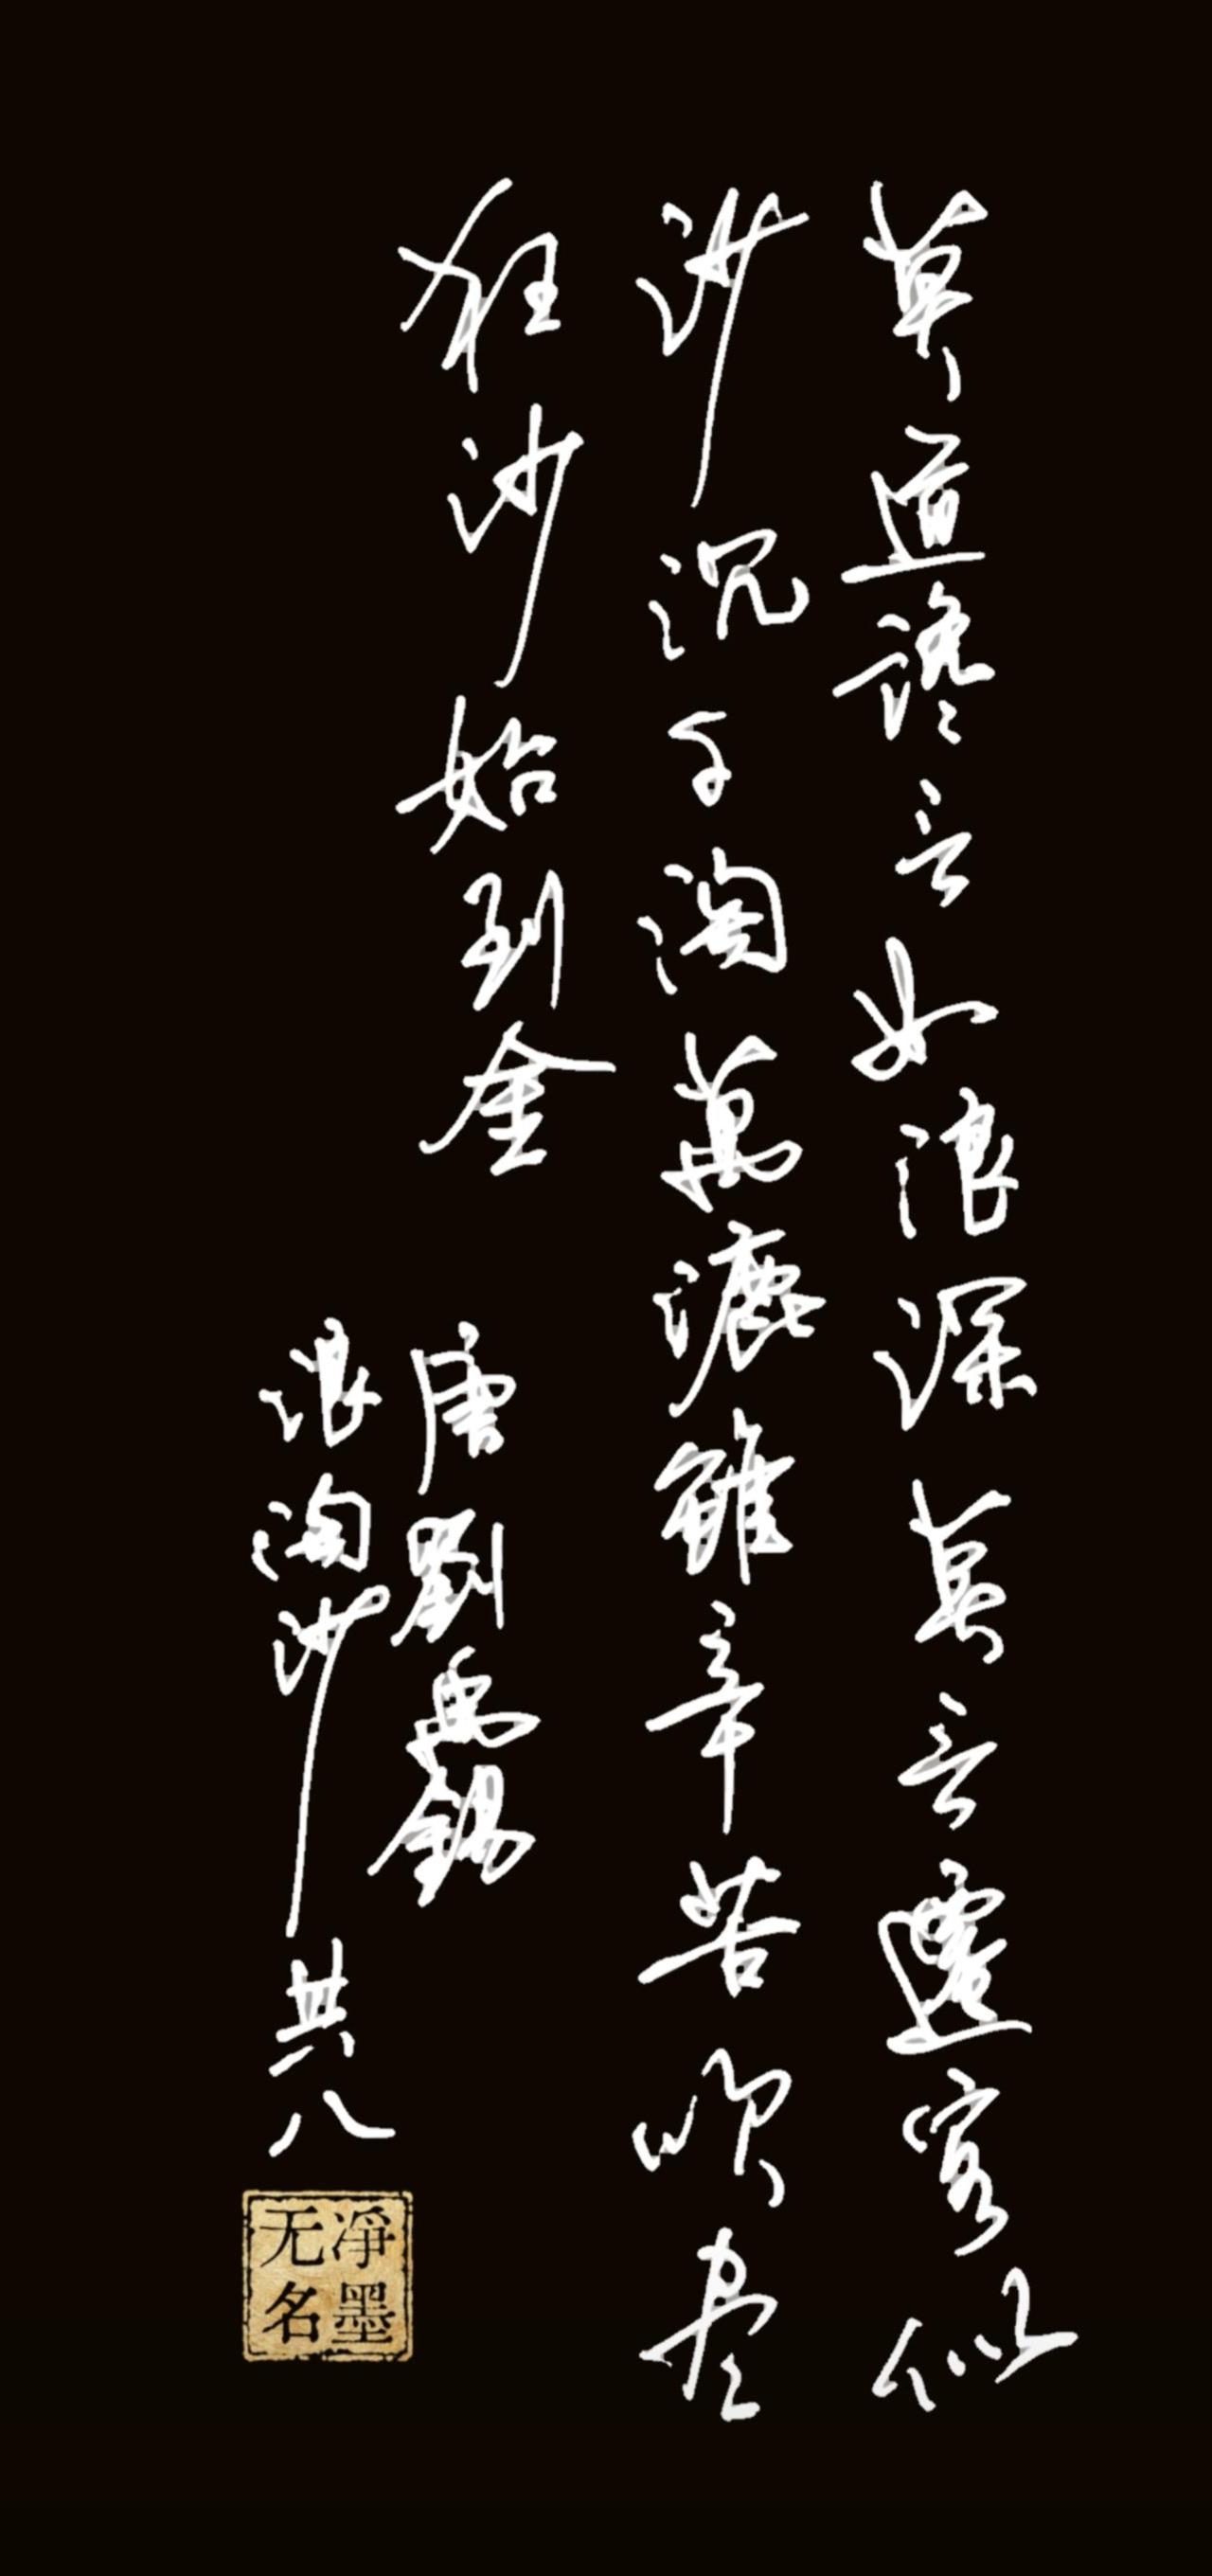 莫道谗言如浪深莫言遷客似
沙沉千淘萬漉雖辛苦吹尽
狂沙始到金
唐劉禹錫
浪淘沙其八
净墨
无名